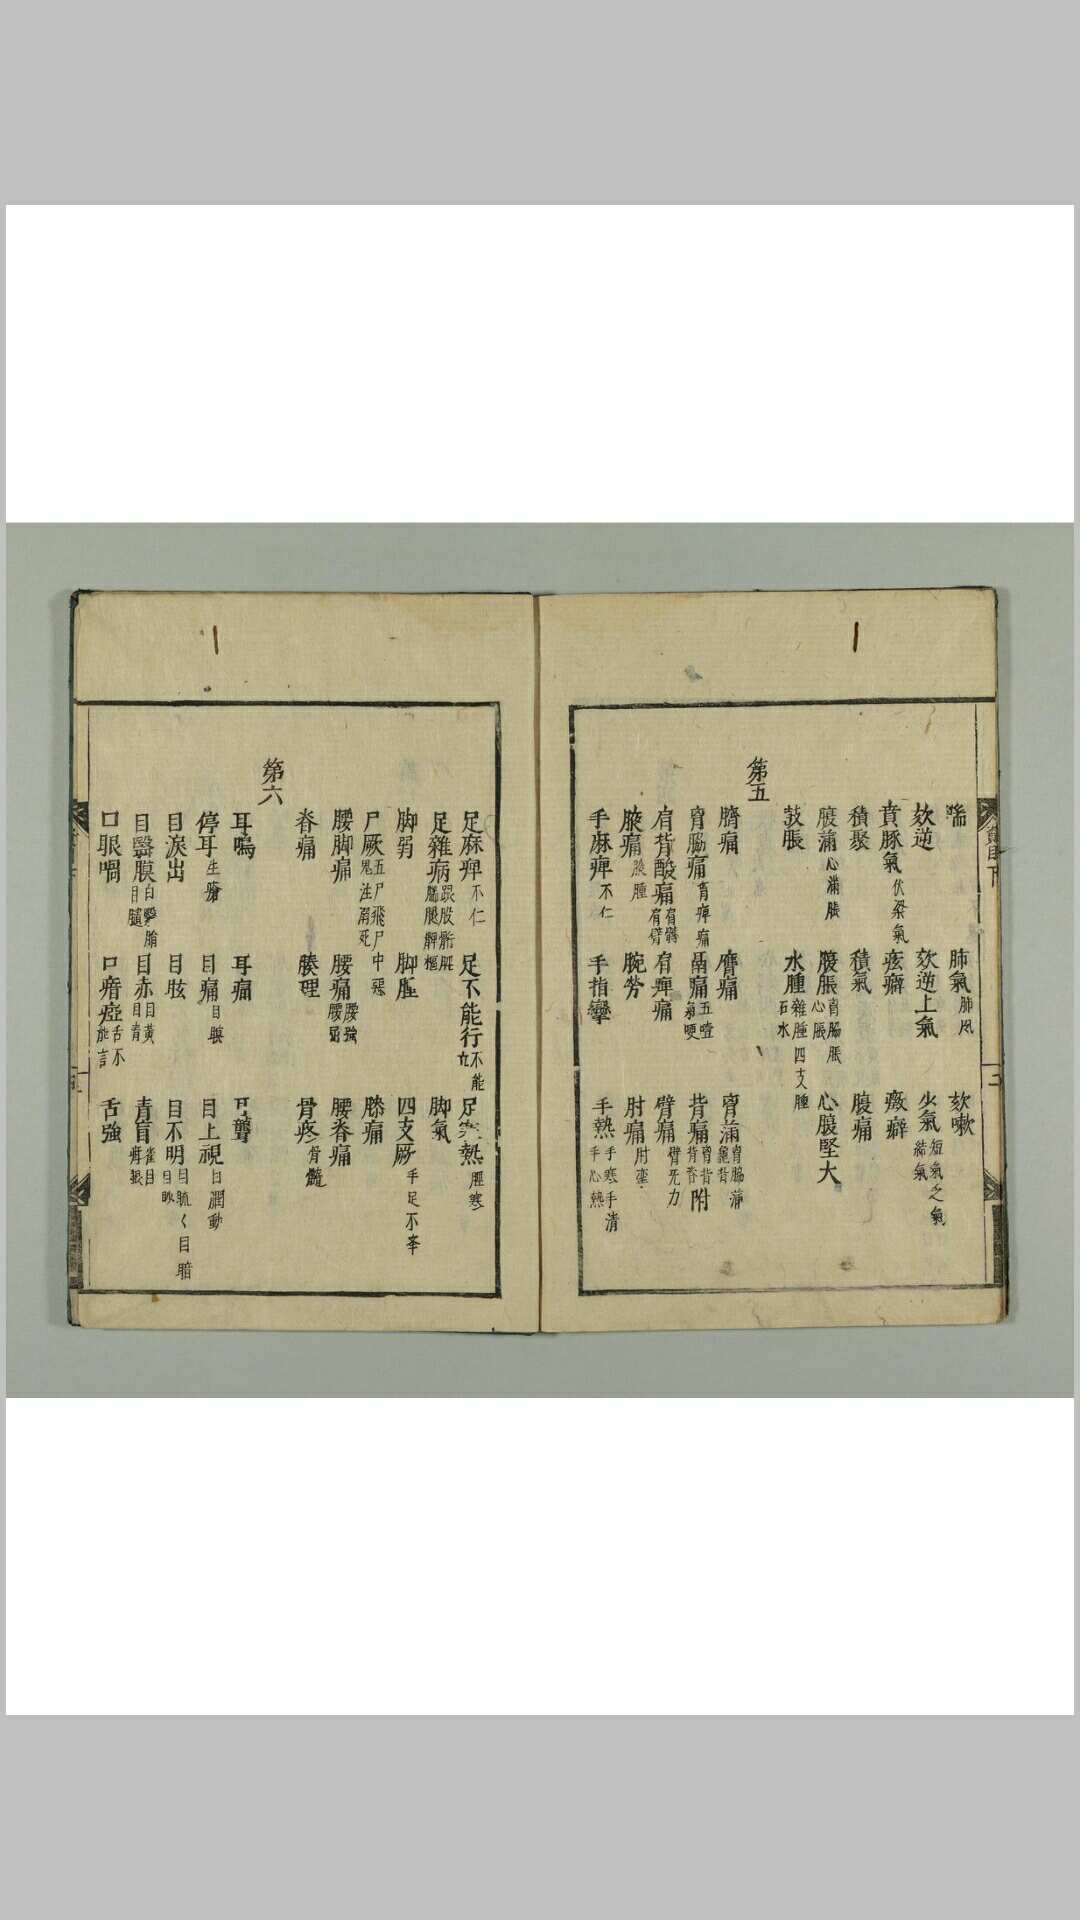 喘　肺氣肺风　欬嗽
欬逆　欬逆上氣　少氣短氣之氣結氣
賁豚氣伏梁氣　痃癖　癥癖
積聚　積氣　腹痛
腹滿心滿脹　腹脹胷脇脹心脹　心腹堅大
鼓脹　水腫雜腫四支腫石水
第五
臍痛　膺痛　胷滿胷脇滿
胷脇痛胷痺痛　鬲痛五噎氣哽　背痛胷背背脊附
肩背酸痛肩髆肩臂　肩痺痛　臂痛臂无力
腋痛腋腫　腕劳　肘痛肘攣
手麻痺不仁　手指攣　手熱手寒手清手心熱
足麻痺不仁　足不能行不能　足寒熱脛寒
足雜病跟股骱胻腨腿髀樞　脚氣
脚弱　脚脛　四支厥手足不举
尸厥五尸飛尸中惡鬼注　膝痛
腰脚痛　腰痛腰強　腰脊痛
脊痛　腠理　骨疼骨髓
第六
耳鳴　耳痛　耳聾
停耳生瘡　目痛目眹　目上視目瞤動
目淚出　目眩　目不明目䀮〻目暗
目翳膜白翳　目赤目黃目青　青盲雀目
口眼喎　口瘖瘂舌不能言　舌強